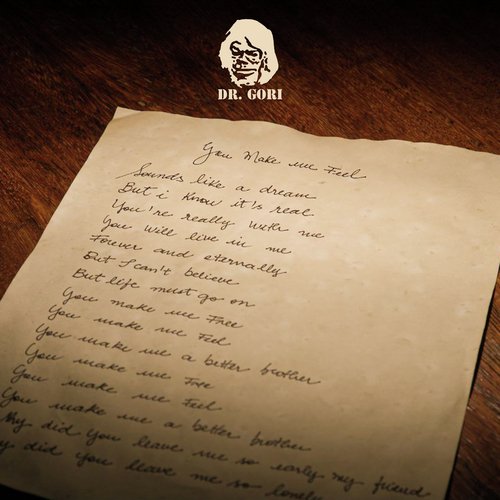 DR. GORI
You Make me Feel
Sounds like a dream
But i know it's real
You're really with me
You will live in me
Forever and eternally
But I can't believe
But life must go on
You make me Free
You make me Feel
You make me a better brother
You make me Free
You make me Feel
You make me a better brother
Why did you leave me so early my friend
did you leave me so